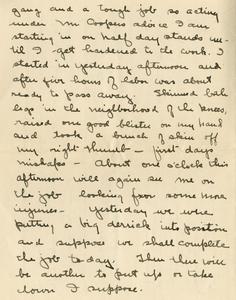 gang and a tough job so acting
under Mr Coopers advice I am
starting in on half day stands un-
til I get hardened to the work. I
started in yesterday afternoon and
after five hours of labor was about
ready to pass away. Skinned both
legs in the neighborhood of the knees,
raised one good blister on my hand
and took a bunch of skin off
my right thumb - first days
mishaps - about one o'clock this
afternoon will again see me on
the job looking for some more
injuries - Yesterday we were
putting a big derrick into position
and suppose we shall complete
the job today. Then there will
be another to put up or take
down I suppose.